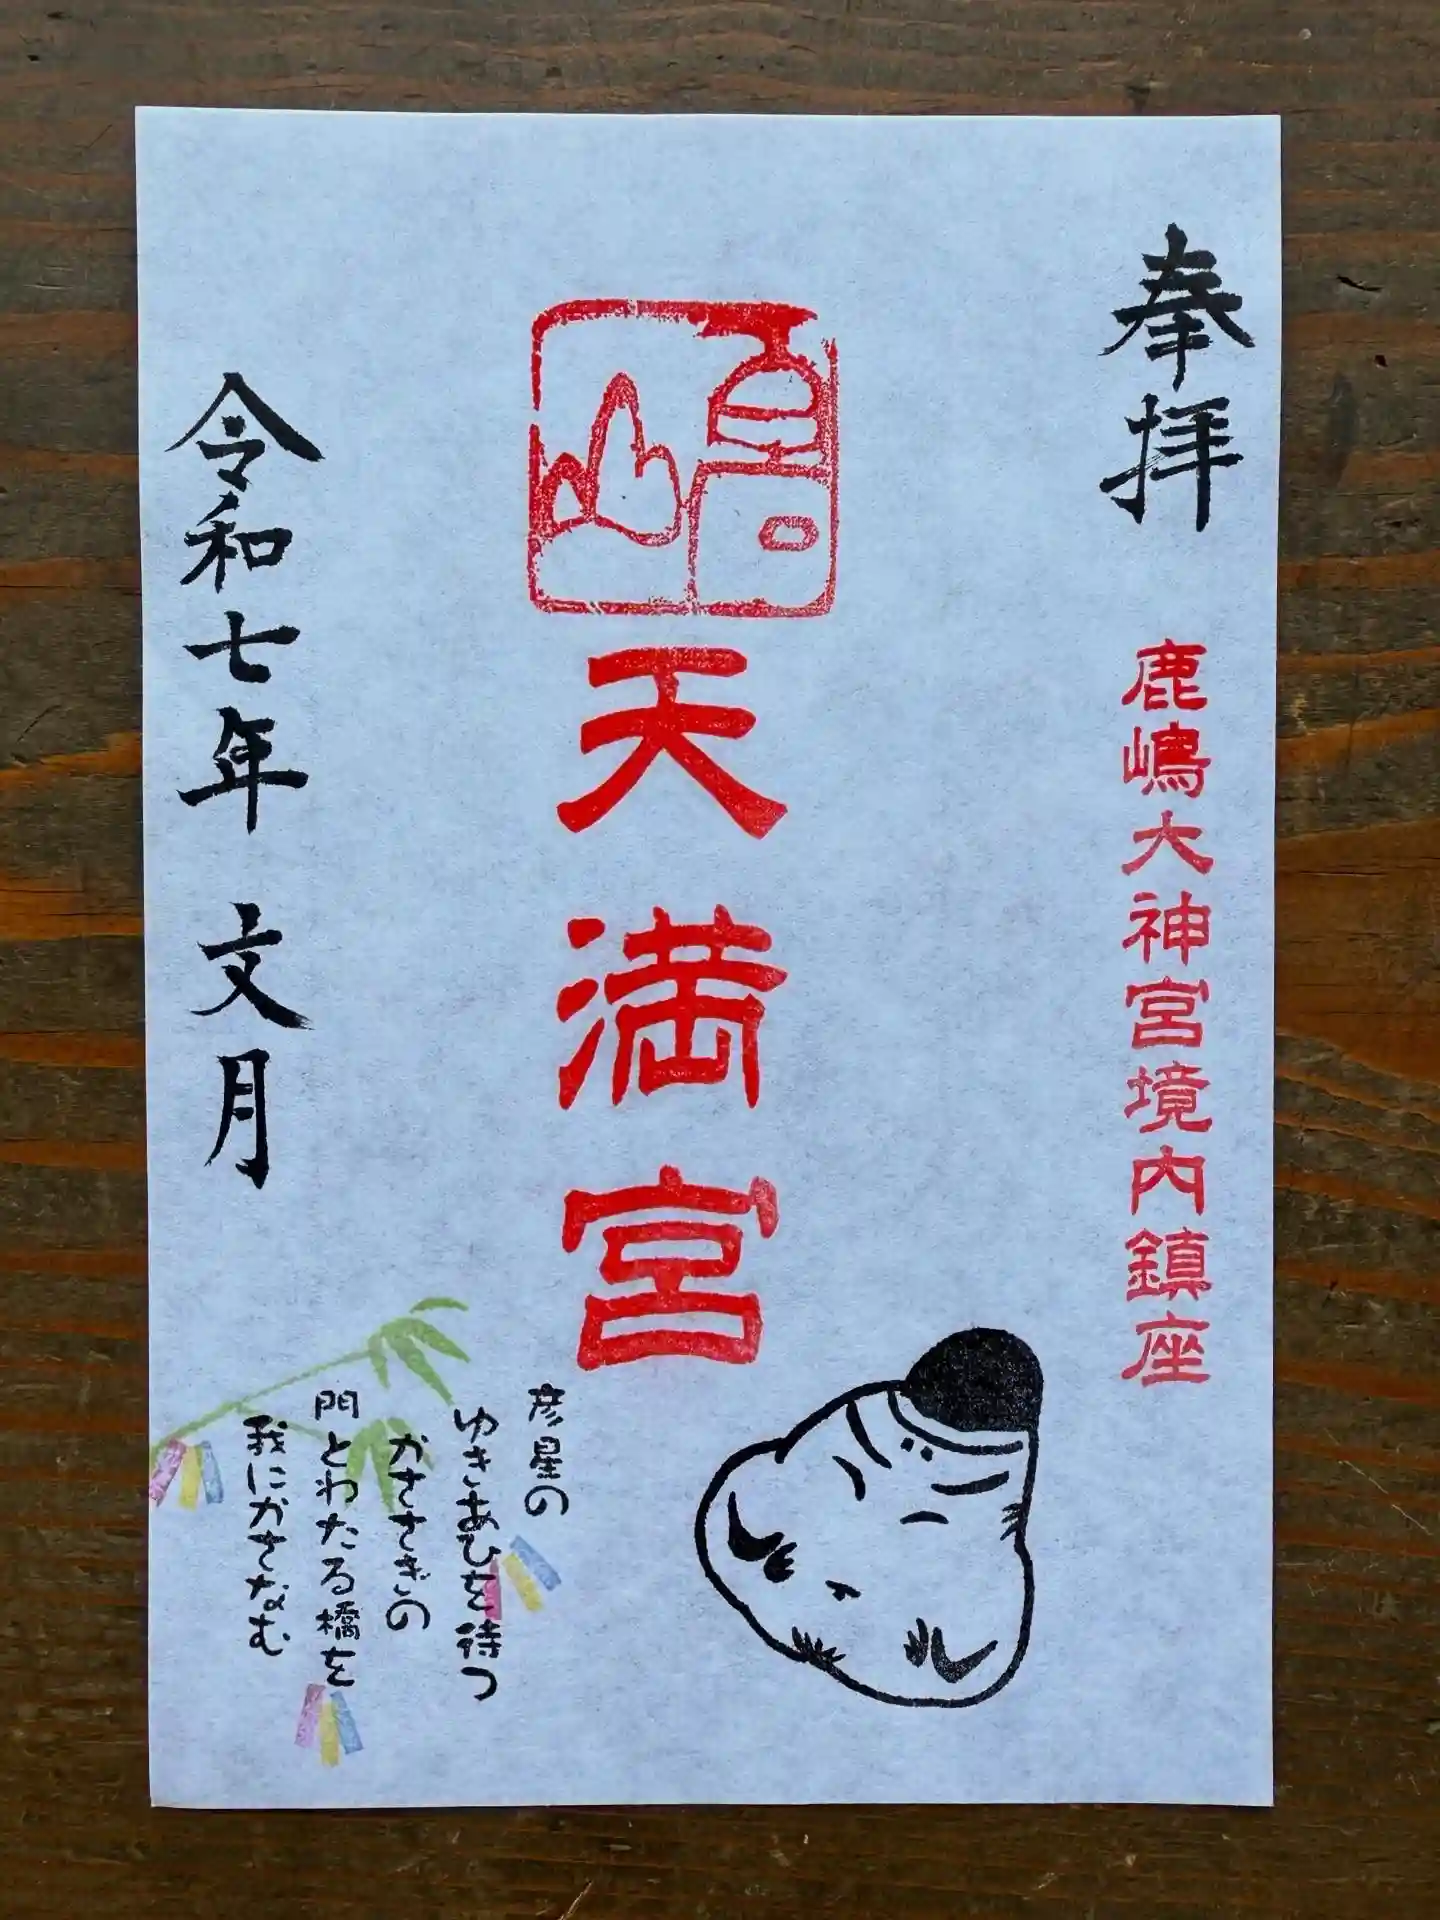 奉拝
鹿嶋大神宮境内鎮座
天満宮
彦星の
ゆきあひを待つ
かささぎの
門とわたる橋を
我にかさなむ
令和七年 文月